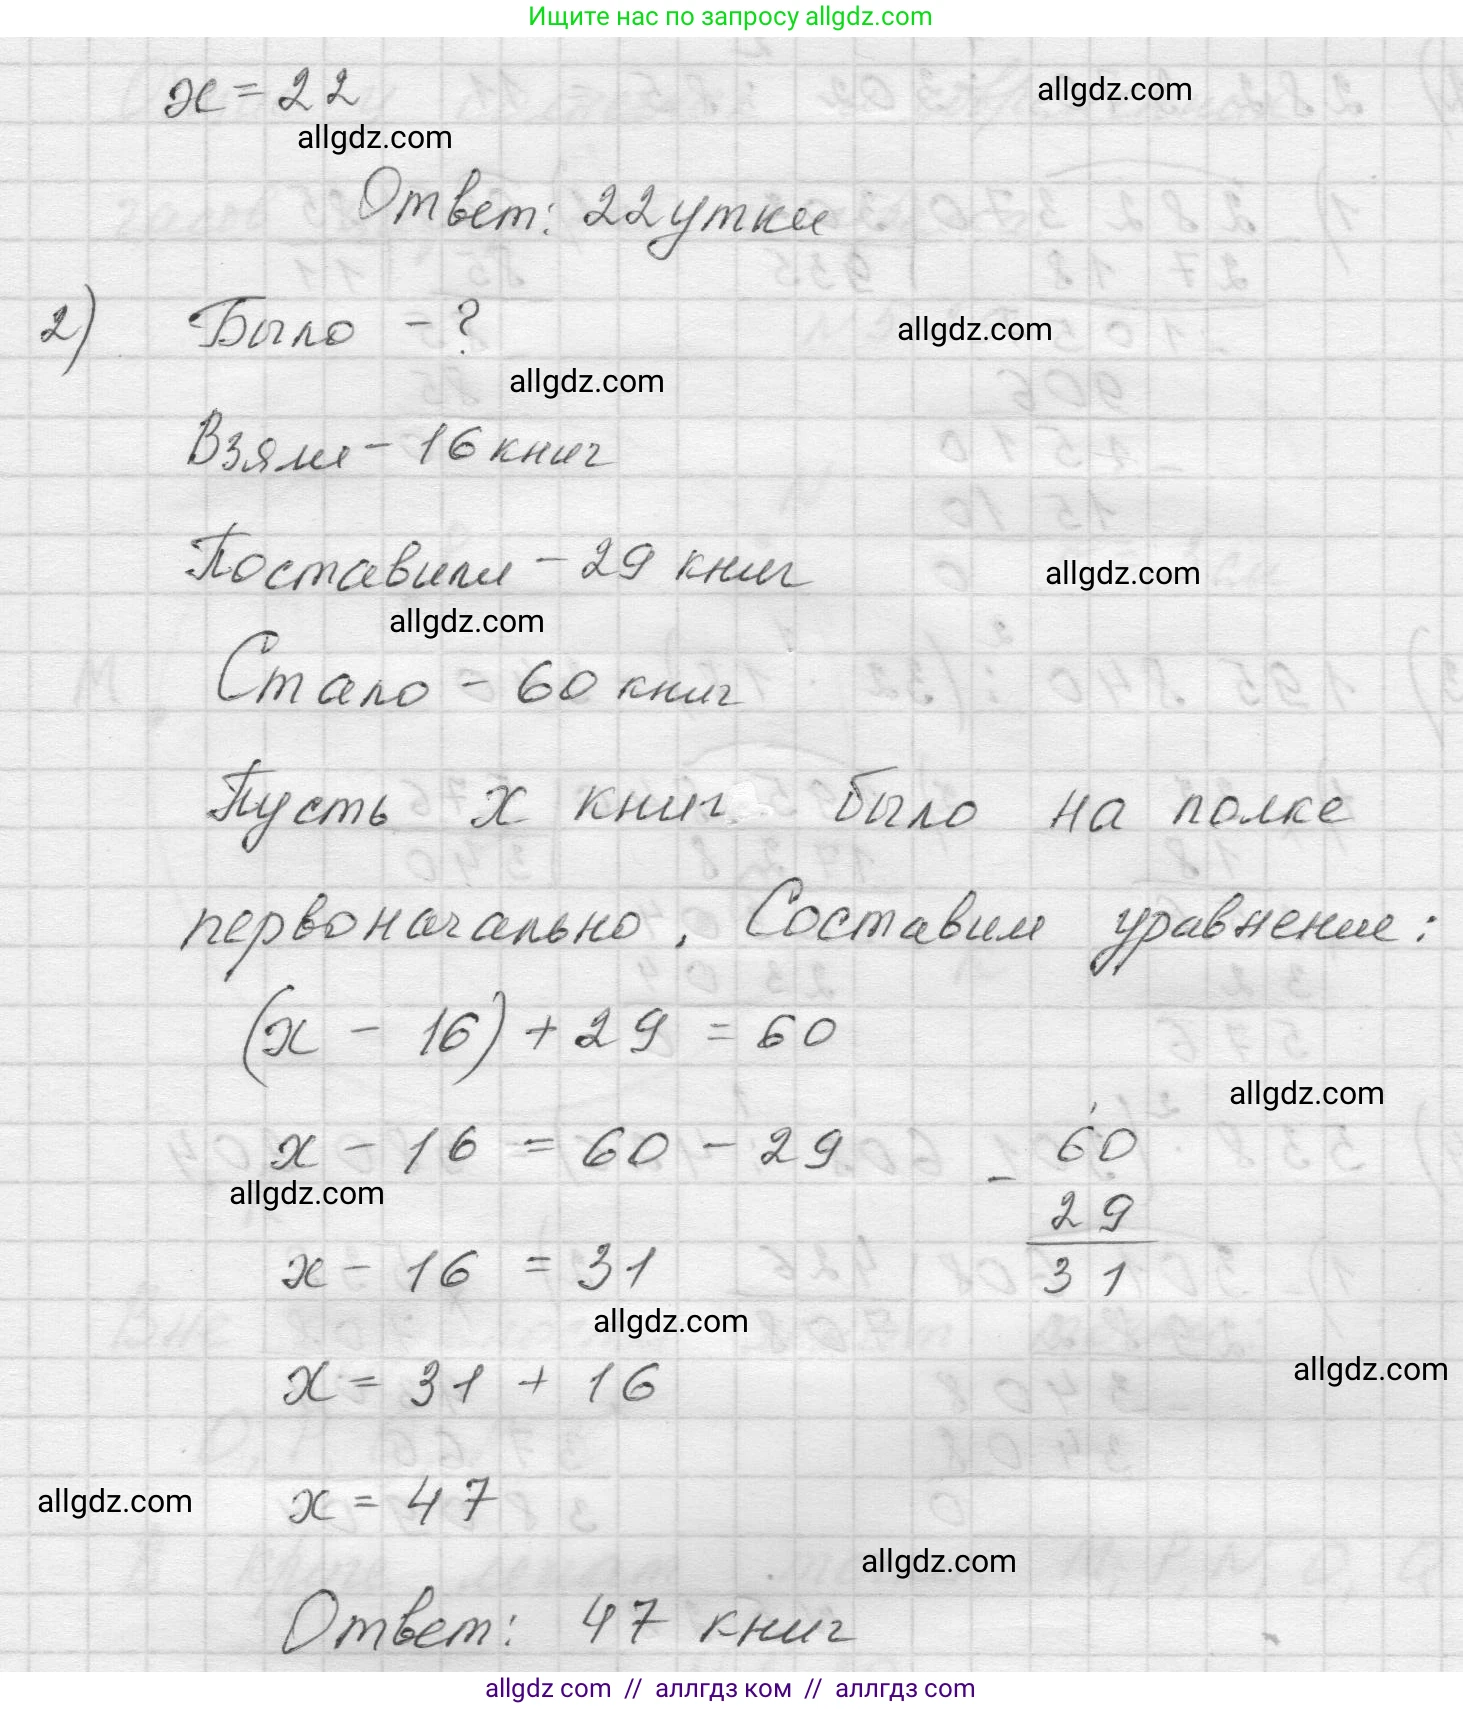 Ищите нас по запросу allgdz.com
x = 22
allgdz.com
allgdz.com
Ответ: 22 утки
2) Было - ?
allgdz.com
allgdz.com
Взяли - 16 книг
Поставили - 29 книг
allgdz.com
allgdz.com
Стало - 60 книг
Пусть x книг было на полке
первоначально. Составим уравнение:
(x - 16) + 29 = 60
allgdz.com
x - 16 = 60 - 29
60
- 29
31
allgdz.com
x - 16 = 31
allgdz.com
allgdz.com
x = 31 + 16
allgdz.com
x = 47
allgdz.com
Ответ: 47 книг
allgdz com // аллгдз ком // аллгдз com